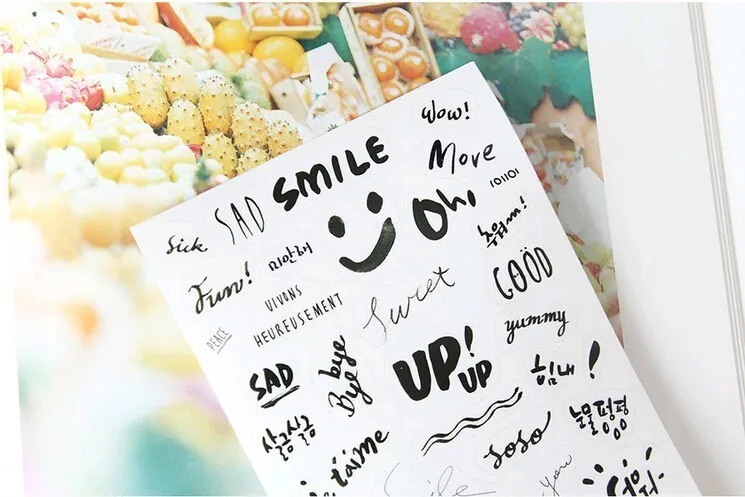 Wow!
SMILE
Move
Sick
SAD
Oh,
101101
Fun!
미안해
GOOD
VIVONS
HEUREUSEMENT
Sweet
PEACE
yummy
SAD
Bye
bye
UP!
UP
힘내!
살금살금
t'aime
SoSo
눈물펑펑
you